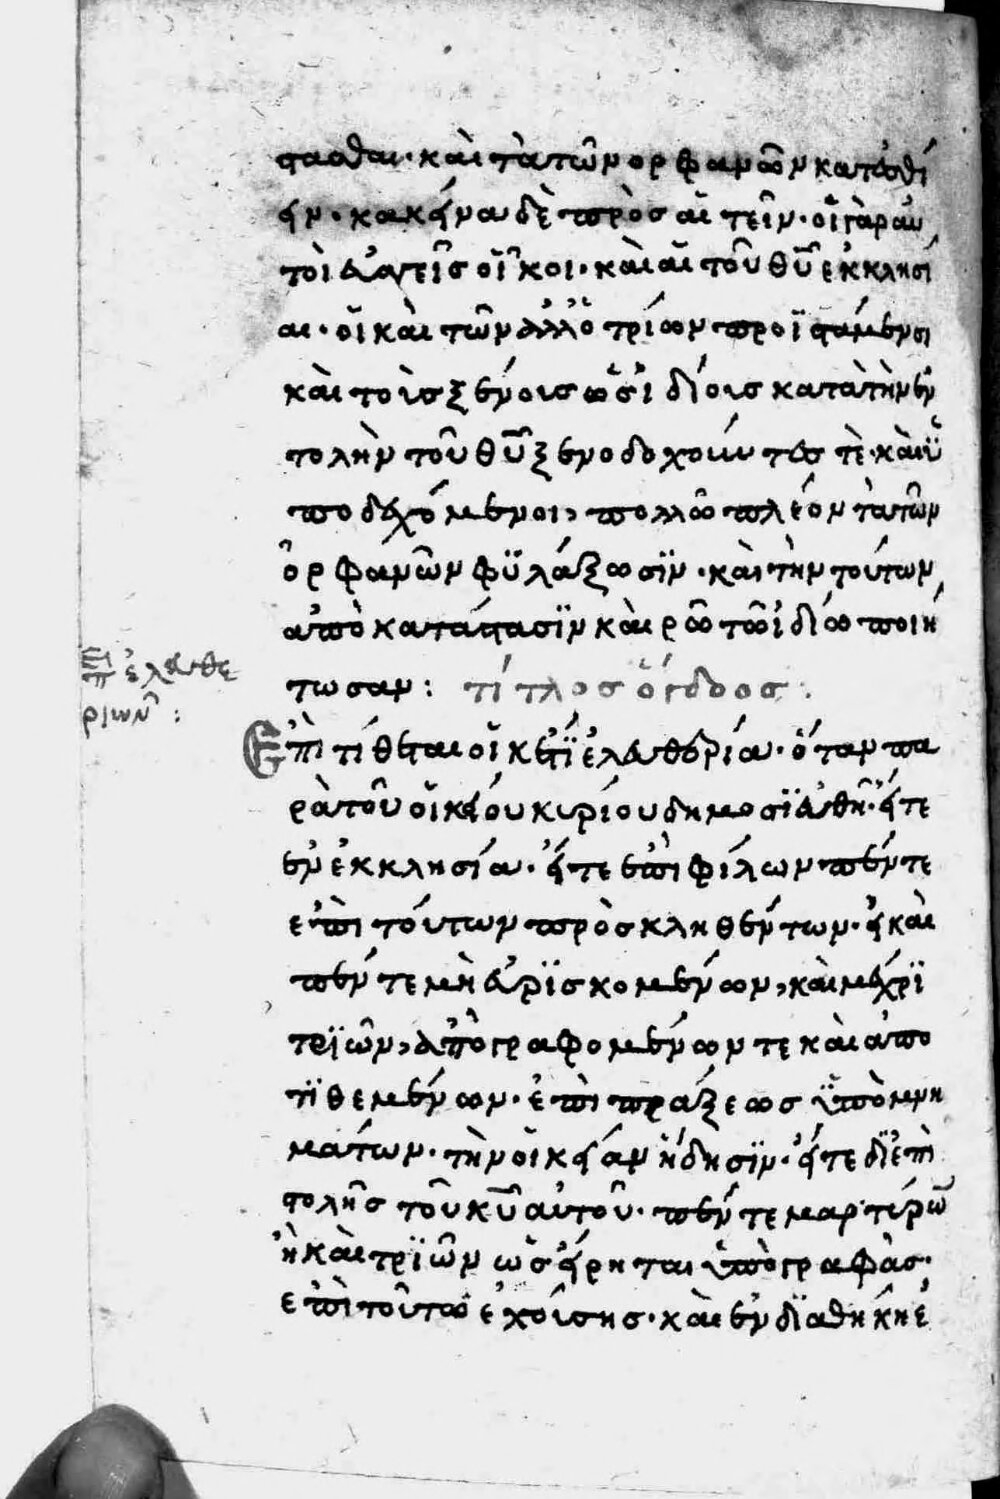 στασθαι· καὶ τὰ τῶν ὀρφανῶν κατεσθί
ειν· κακείνα δὲ προσαἰτεῖν· οἱ γὰρ αὐ
τοὶ εὐαγεῖς οἶκοι· καὶ αἱ τοῦ θῦ ἐκκλησί
αι· οἱ καὶ τῶν ἀλλοτρίων προϊστάμενοι
καὶ τοῖς ξένοις ὡς ἰδίοις κατὰ τὴν ἐν
τολὴν τοῦ θῦ ξενοδοχοῦντες τὲ· καὶ ὑ
ποδεχόμενοι, πολλῶ πλέον τὰ τῶν
ὀρφανῶν φϋλάξωσϊν· καὶ τὴν τούτων
ἀποκατάστασϊν καιρῶ τῶ ἰδίω ποιεί
τωσαν: τίτλος ὄγδοος:
ἐπὶ ἐλευθε
ριῶν:
Ἐπιτίθεται οἰκέτϊ ἐλευθερία· ὅταν πα
ρὰ τοῦ οἰκείου κυρίου δημοσϊευθῆ· εἴτε
ἐν ἐκκλησία· εἴτε ἐπὶ φίλων πέντε
ἐπὶ τούτων προσκληθέντων· εἰ καὶ
πέντε μὴ εὑρϊσκομένων, καὶ μέχρϊ
τρϊῶν, ὑπογραφομένων τε καὶ ἀπο
τϊθεμένων· ἐπὶ πράξεως ὑπομνη
μάτων· τὴν οἰκείαν εἴδησϊν· εἴτε δϊ ἐπι
στολῆς τοῦ κῦ αὐτοῦ· πέντε μαρτύρω
ἢ καὶ τρϊῶν ὡς εἴρηται ὑπογραφὰς·
ἐπὶ τούτω ἐχούσης· καὶ ἐν δϊαθήκη ἐ